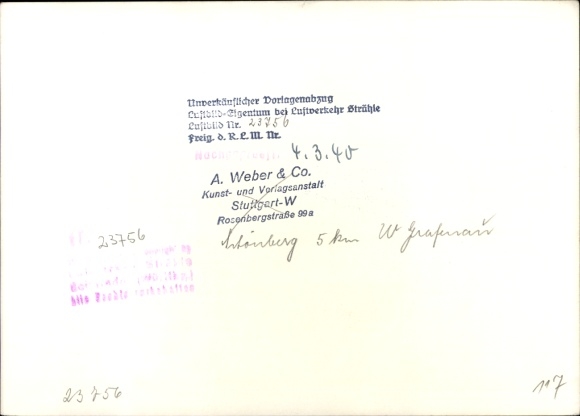 Unverkäuflicher Vorlagenabzug
Luftbild-Eigentum bei Luftverkehr Strähle
Luftbild Nr. 23756
Freig. d. R.L.M. Nr.
4.3.40
A. Weber & Co.
Kunst- und Verlagsanstalt
Stuttgart-W
Rosenbergstraße 99a
23756
Schönberg 5 km W Grafenau
alle Rechte vorbehalten
23756
117